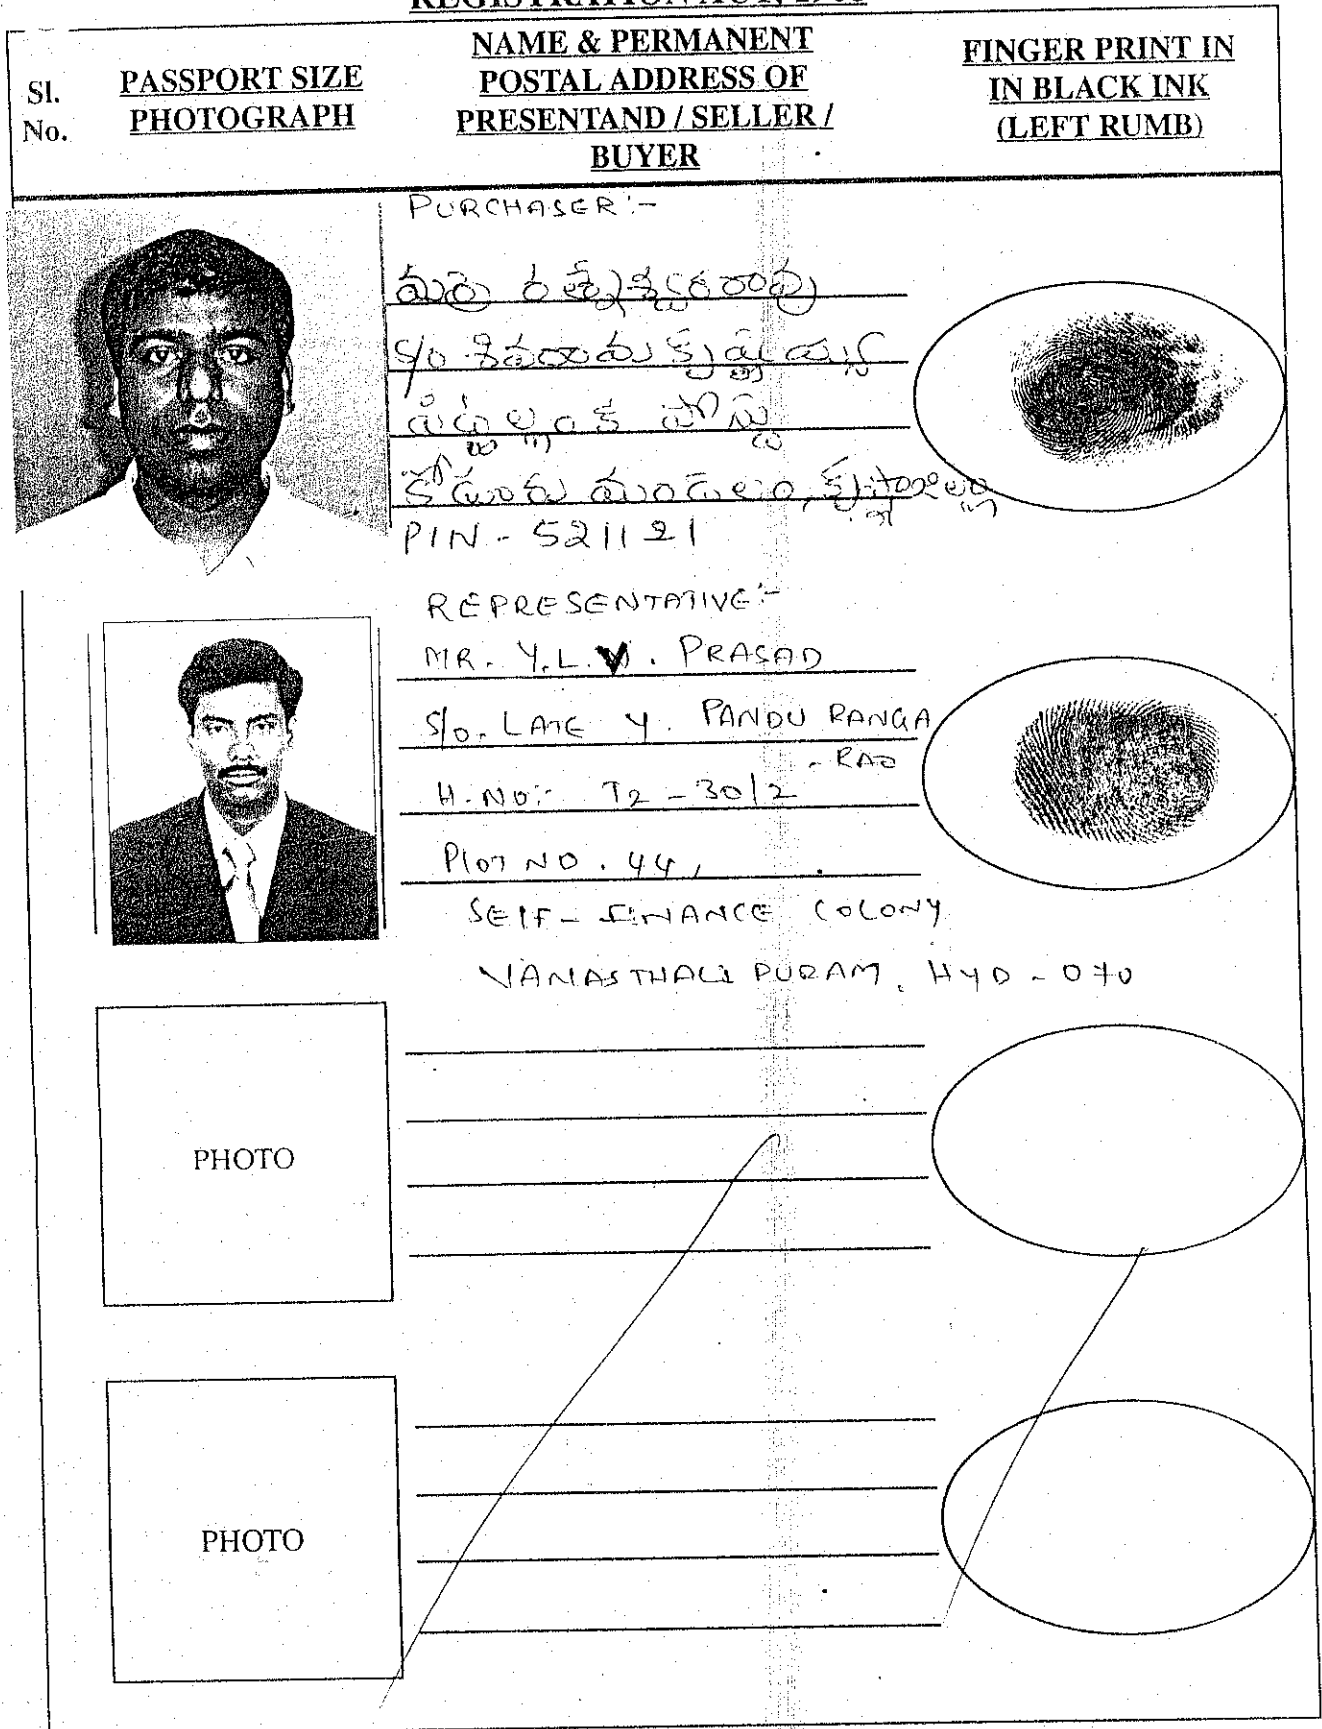 REGISTRATION ACT, 1908
Sl. No.
PASSPORT SIZE PHOTOGRAPH
NAME & PERMANENT POSTAL ADDRESS OF PRESENTAND / SELLER / BUYER
FINGER PRINT IN IN BLACK INK (LEFT RUMB)
PURCHASER:-
S/o శివరామ కృష్ణయ్య
పోస్టు
కోడూరు మండలం, కృష్ణాజిల్లా
PIN - 521121
REPRESENTATIVE:-
MR. Y.L.V. PRASAD
S/o. LATE Y. PANDU RANGA
- RAO
H.NO:- T2-30/2
Plot NO. 44,
SELF-FINANCE COLONY
VANASTHALIPURAM, HYD-070
PHOTO
PHOTO